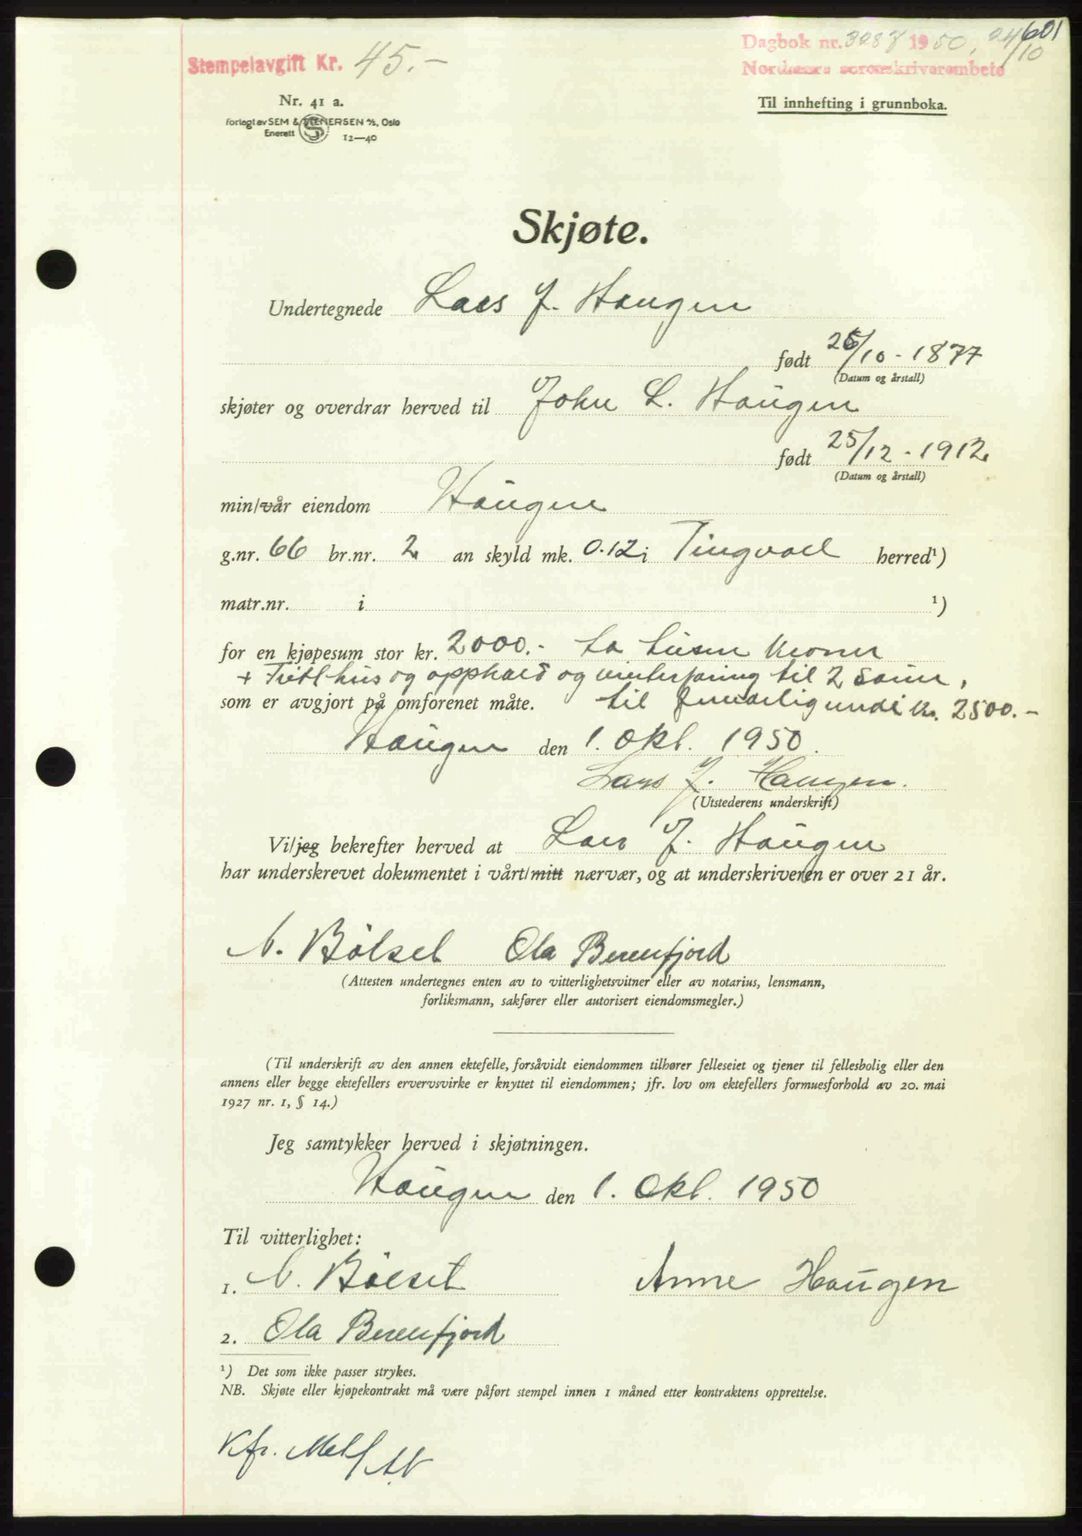 601
Dagbok nr. 3287 1950, 24/10
Stempelavgift Kr. 45.-
Nordmøre sorenskriverembete
Nr. 41 a.
Til innhefting i grunnboka.
Forlagt av SEM & STENERSEN A/S, Oslo
Enerett 12—40
Skjøte.
Undertegnede Lars J. Haugen
født 26/10 - 1877
(Datum og årstall)
skjøter og overdrar herved til John L. Haugen
født 25/12 - 1912
(Datum og årstall)
min/vår eiendom Haugen
g.nr. 66 br.nr. 2 an skyld mk. 0.12 i Tingvoll herred¹)
matr.nr. i ¹)
for en kjøpesum stor kr. 2000.- to tusen kroner
+ Fritt hus og opphold og vinterforing til 2 sauer,
som er avgjort på omforenet måte. til femårlig verdi kr. 2500.-
Haugen den 1. okt. 1950.
Lars J. Haugen.
(Utstederens underskrift)
Vi/jeg bekrefter herved at Lars J. Haugen
har underskrevet dokumentet i vårt/mitt nærvær, og at underskriveren er over 21 år.
N. Bölset Ola Berenfjord
(Attesten undertegnes enten av to vitterlighetsvitner eller av notarius, lensmann,
forliksmann, sakfører eller autorisert eiendomsmegler.)
(Til underskrift av den annen ektefelle, forsåvidt eiendommen tilhører felleseiet og tjener til fellesbolig eller den
annens eller begge ektefellers ervervsvirke er knyttet til eiendommen; jfr. lov om ektefellers formuesforhold av 20. mai
1927 nr. 1, § 14.)
Jeg samtykker herved i skjøtningen.
Haugen den 1. Okt. 1950
Til vitterlighet:
1. N. Bölset Anne Haugen
2. Ola Berenfjord
¹) Det som ikke passer strykes.
NB. Skjøte eller kjøpekontrakt må være påført stempel innen 1 måned etter kontraktens opprettelse.